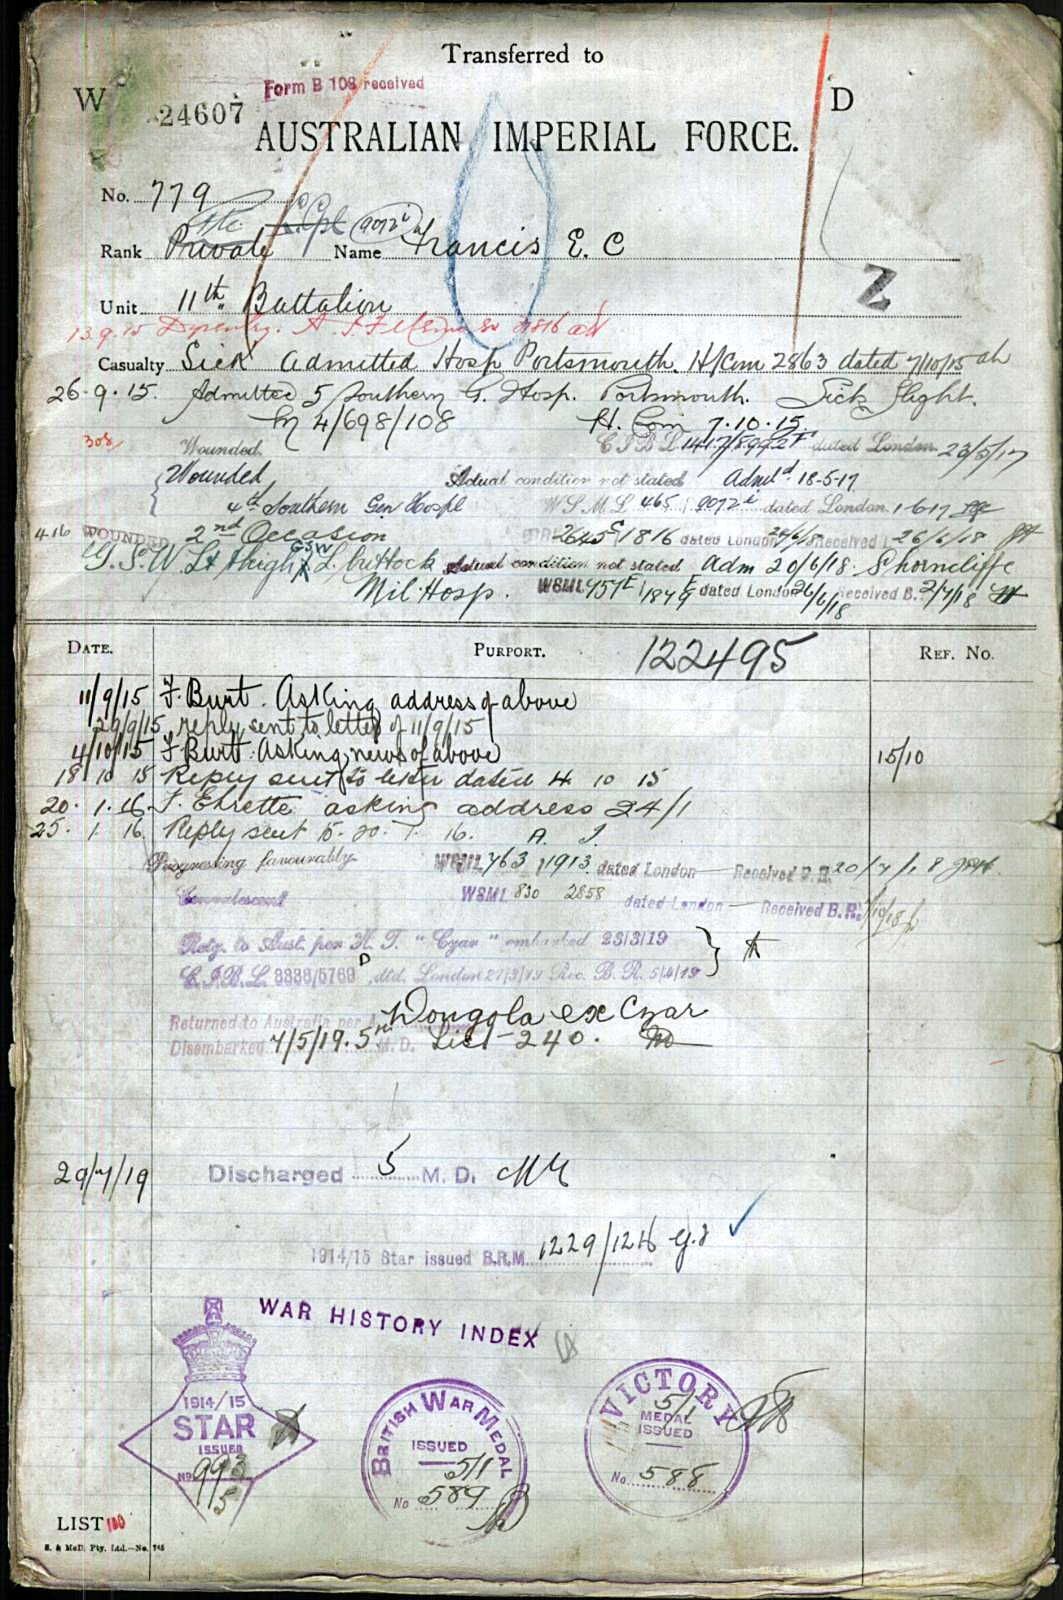 Transferred to
W D
24607 Form B 103 received
AUSTRALIAN IMPERIAL FORCE.
No. 779
Rank Private L/Cpl Name Francis E. C
Unit 11th Battalion
13.9.15 Dysentry.
Casualty Sick admitted Hosp Portsmouth. H/Com 2863 dated 7/10/15
26.9.15. Admitted 5 Southern G. Hosp. Portsmouth. Sick slight.
4/698/108 H. Com 7.10.15.
308 Wounded. dated London 23/5/17
Wounded Actual condition not stated Admd. 18-5-17
4th Southern Gen Hospl W.S.M.L. 465 9072 dated London 1-6-17
416 WOUNDED 2nd Occasion 1816 dated London Received 26/6/18
G.S.W Lt thigh GSW L. buttock Actual condition not stated Adm 20/6/18. Shorncliffe
Mil Hosp. WSML 457E dated London 26/6/18 Received B. 2/7/18
DATE. PURPORT. 122495 REF. No.
11/9/15 F Burt. Asking address of above
29/9/15 reply sent to letter of 11/9/15
4/10/15 F Burt Asking news of above 15/10
18 10 15 Reply sent to letter dated 4 10 15
20. 1. 16 F. Ehrette asking address 24/1
25. 1 16. Reply sent 16.
Progressing favourably. WSML 763 1913 dated London Received B.R. 20/7/18
Convalescent WSML 830 2858 dated London Received B.R.
Retg. to Aust. per H. T. "Czar" embarked 23/3/19
C.I.B.L. 3336/5769 dtd. London 27/3/19 Rec. B. R. 5/4/19
Returned to Australia per Dongola ex Czar
Disembarked 7/5/19. 5th M.D. List 240.
29/7/19 Discharged 5 M. D.
1914/15 Star issued B.R.M. 1229/
WAR HISTORY INDEX
1914/15
STAR
ISSUED
No 993
5
BRITISH WAR MEDAL
ISSUED
5/1
No 589
VICTORY
5/1
MEDAL
ISSUED
No. 588
LIST 100
E. & McD. Pty. Ltd.—No. 745